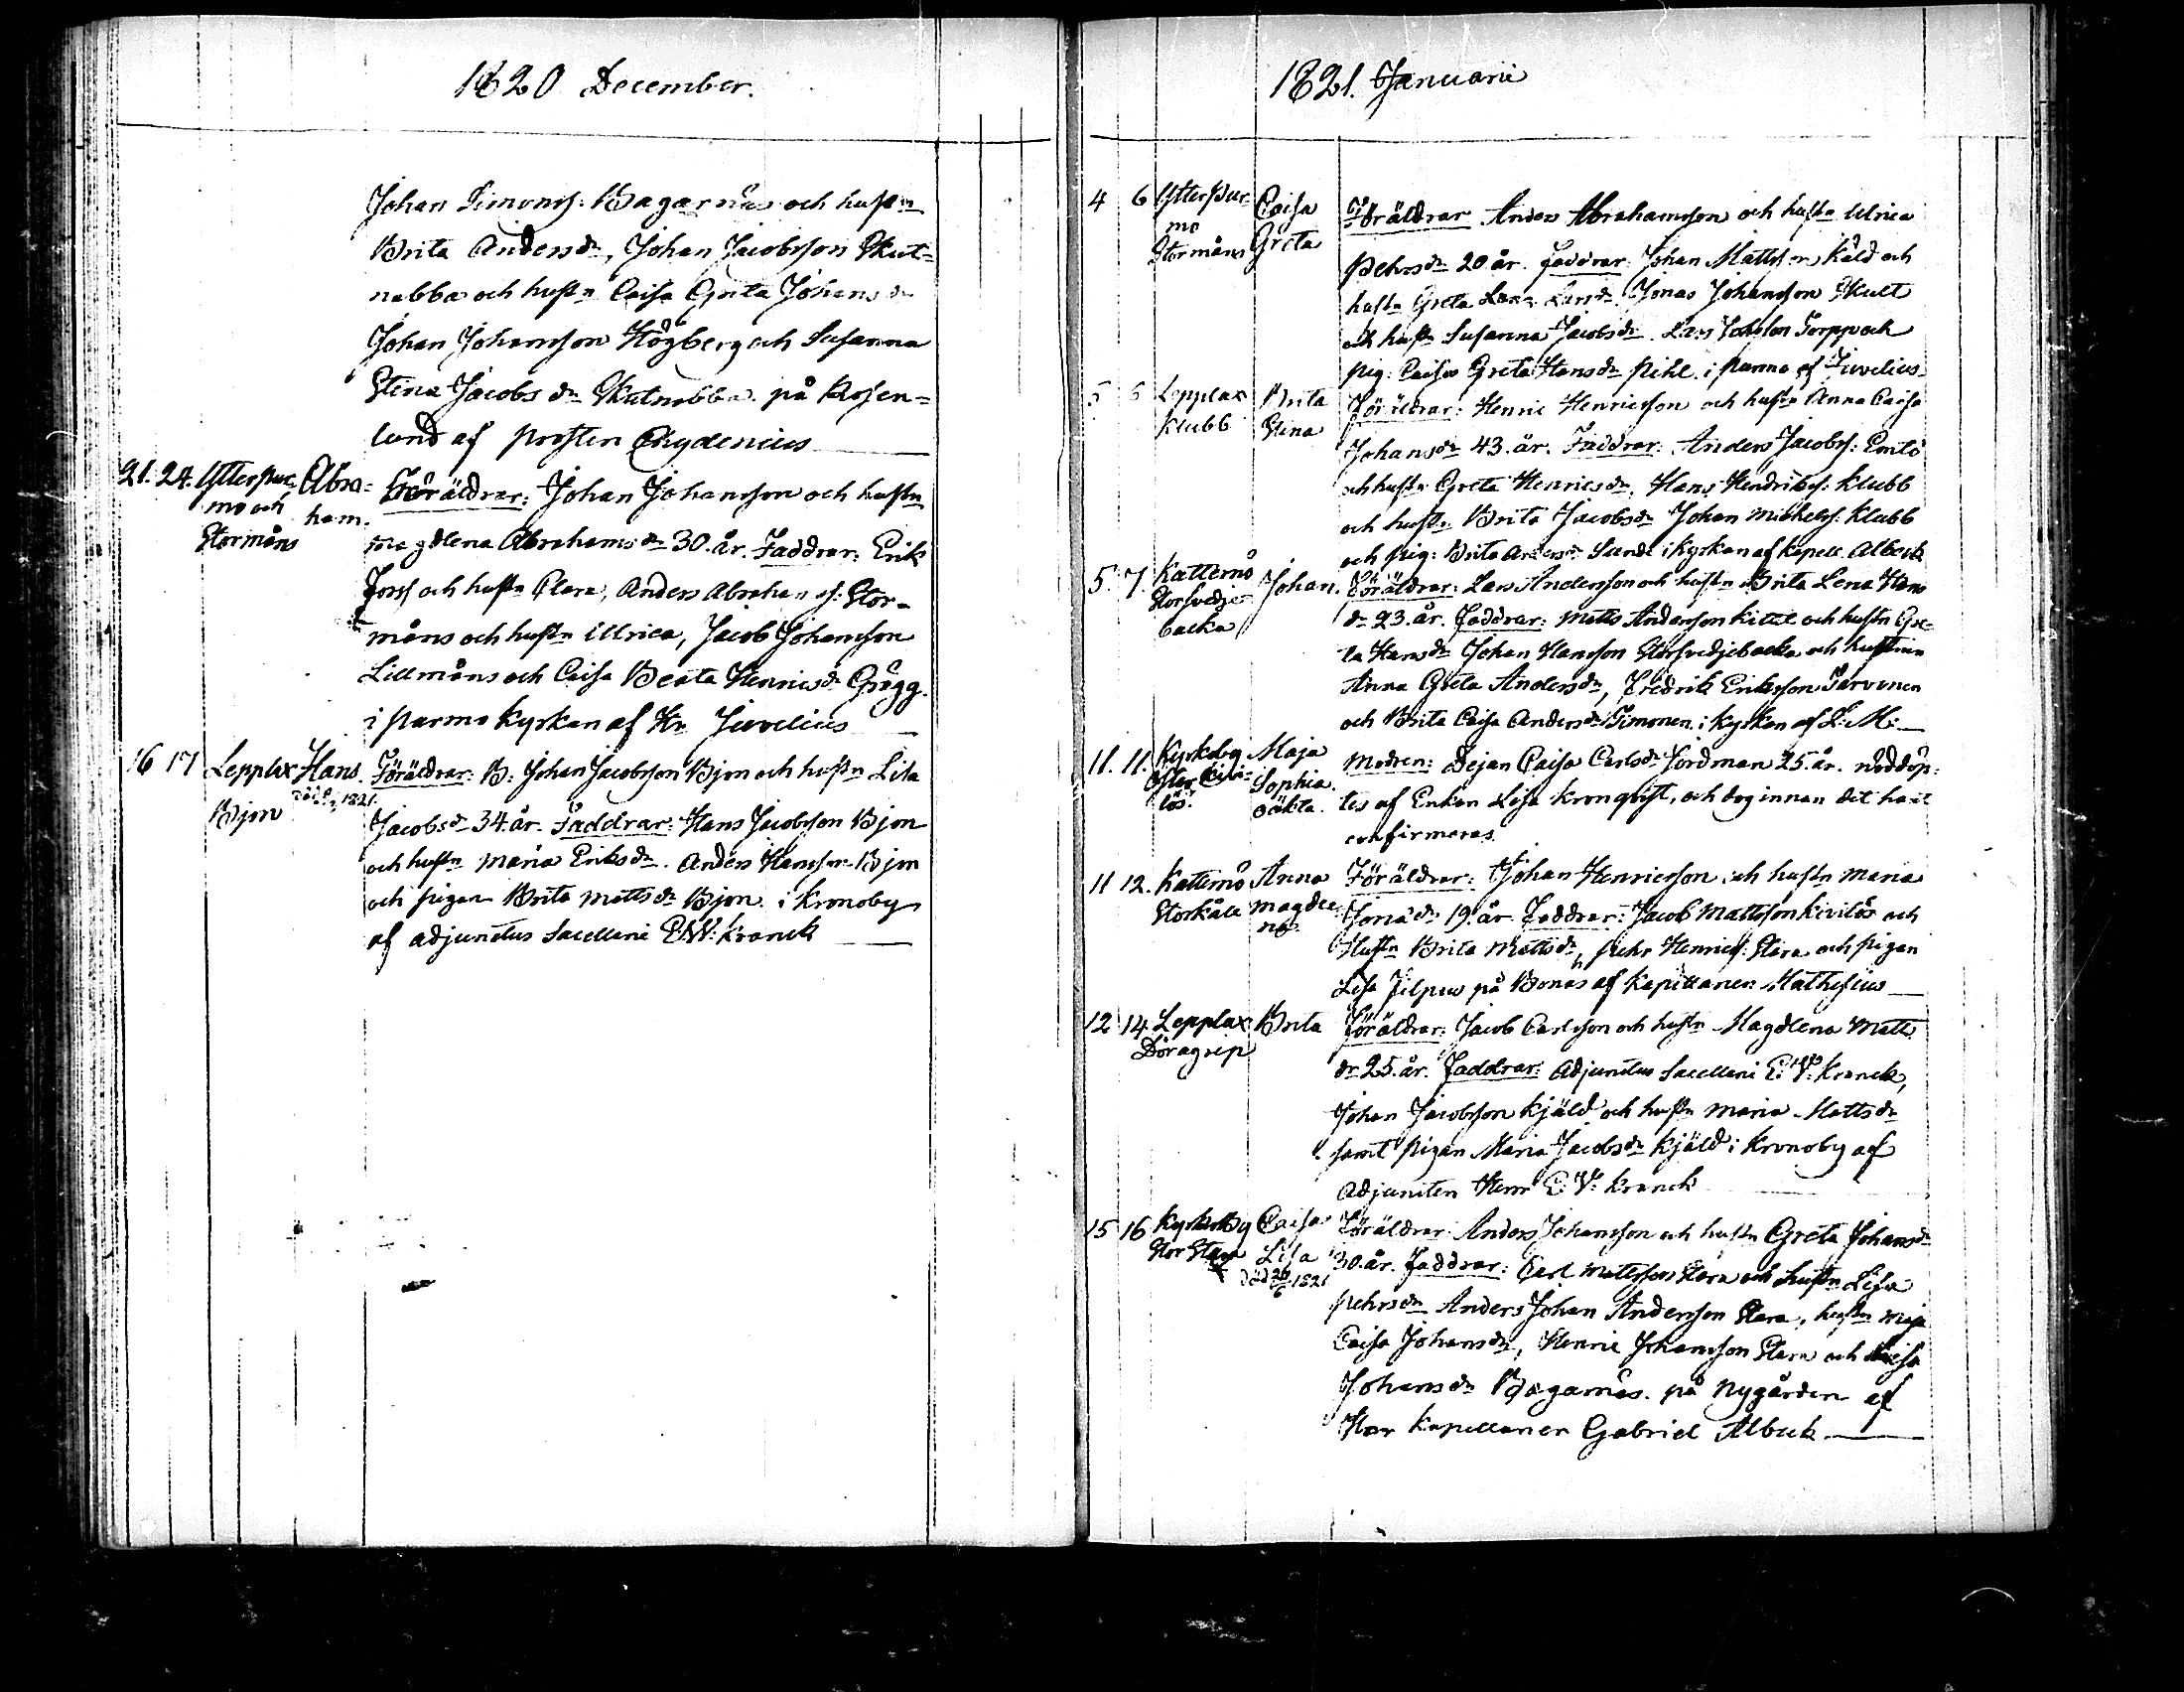 1820 December.
Johan Simonss: Bagarnäs och hustn
Brita Andersdr, Johan Jacobsson Skut=
nabba och hustn Caisa Greta Johansdr
Johan Johansson Högberg och Susanna
Stina Jacobsdr Skutnabba på Rosen=
lund af prosten Chydenius
21. 24. Ytterpur= Abra= Föräldrar: Johan Johansson och hustn
mo och ham. Magdlena Abrahamsdr 30. år. Faddrar: Erik
Stormåns
Forss och hustn Clara, Anders Abrahamss: Stor=
måns och hustn Ulrica, Jacob Johansson
Lillmåns och Caisa Beata Henricsdr Grågg.
i purmo kyrkan af Hr Juvelius
16 17 Lepplax Hans. Föräldrar: B: Johan Jacobsson Bjon och hustn Lisa
Bjon död 1821.
Jacobsdr 34. år. Faddrar: Hans Jacobsson Bjon
och hustn Maria Eriksdr. Anders Hansson Bjon
och pigan Brita Mattsdr Bjon. i Kronoby
af adjunctus Sacellani E:W: Kranck
1821. Januarii
4 6 Ytterpur= Caisa Föräldrar Anders Abrahamsson och hustn Ulrica
mo Greta
Stormåns
Pehrsdr 20 år. Faddrar: Johan Mattsson Käld och
hustn Greta Lena Larsdr. Jonas Johansson Skult
och hustn Susanna Jacobsdr. Lars Johansson Torpp och
pig: Caisa Greta Hansdr Pihl. i purmo af Juvelius
5 6 Lepplax Brita Föräldrar: Henric Henricsson och hustn Anna Caisa
Klubb Stina
Johansdr 43. år. Faddrar: Anders Jacobss: Emtö
och hustn Greta Henricsdr. Hans Hendrikss: Klubb
och hustn Brita Jacobsdr Johan Mickelss: Klubb
och pig: Brita Andersdr Sundt i Kyrkan af kapell. Albeck
5. 7. Katternö Johan. Föräldrar: Lars Andersson och hustn Brita Lena Hans
Storsvedje=
backa
dr 23. år. Faddrar: Matts Andersson Kittil och hustn Gre=
ta Hansdr Johan Hansson Storsvedjebacka och hustrun
Anna Greta Andersdr, Fredrik Eriksson Tarvonen
och Brita Caisa Andersdr Timonen. i kyrkan af L: M:
11. 11. Kyrkoby Maja Modren: Dejan Caisa Carlsdr Jordman 25. år. nöddöp=
Öster Kivi= Sophia.
lös. oäkta.
tes af Enkan Lisa Kronqvist, och dog innan det hant
confirmeras.
11 12. Katternö Anna Föräldrar: Johan Henricsson och hustn Maria
Storkåll Magdle=
na
Jonsdr 19. år. Faddrar: Jacob Mattsson Kivilös och
Hustn Brita Mattsdr, Pehr Henricss: Stara och pigan
Lisa Filpus på Bonäs af kapellanen Mathesius
12 14. Lepplax Brita Föräldrar: Jacob Carlsson och hustn Magdlena Matts
Döragrip
dr 25. år. Faddrar: Adjunctus Sacellani E: W: Kranck,
Johan Jacobsson Kjäld och hustn Maria Mattsdr
samt pigan Maria Jacobsdr Kjäld i Kronoby af
Adjuncten Herr E: W: Kranck
15 16 Kyrkoby Caisa Föräldrar: Anders Johansson och hustn Greta Johansdr
Stor Stara Lisa
död 26/6 1821
30. år. Faddrar: Carl Matsson Stara och hustn Lisa
Pehrsdr Anders Johan Andersson Stara, hustn Maja
Caisa Johansdr, Henric Johansson Stara och
Johansdr Bagarnäs. på Nygården af
Herr kapellanen Gabriel Albeck